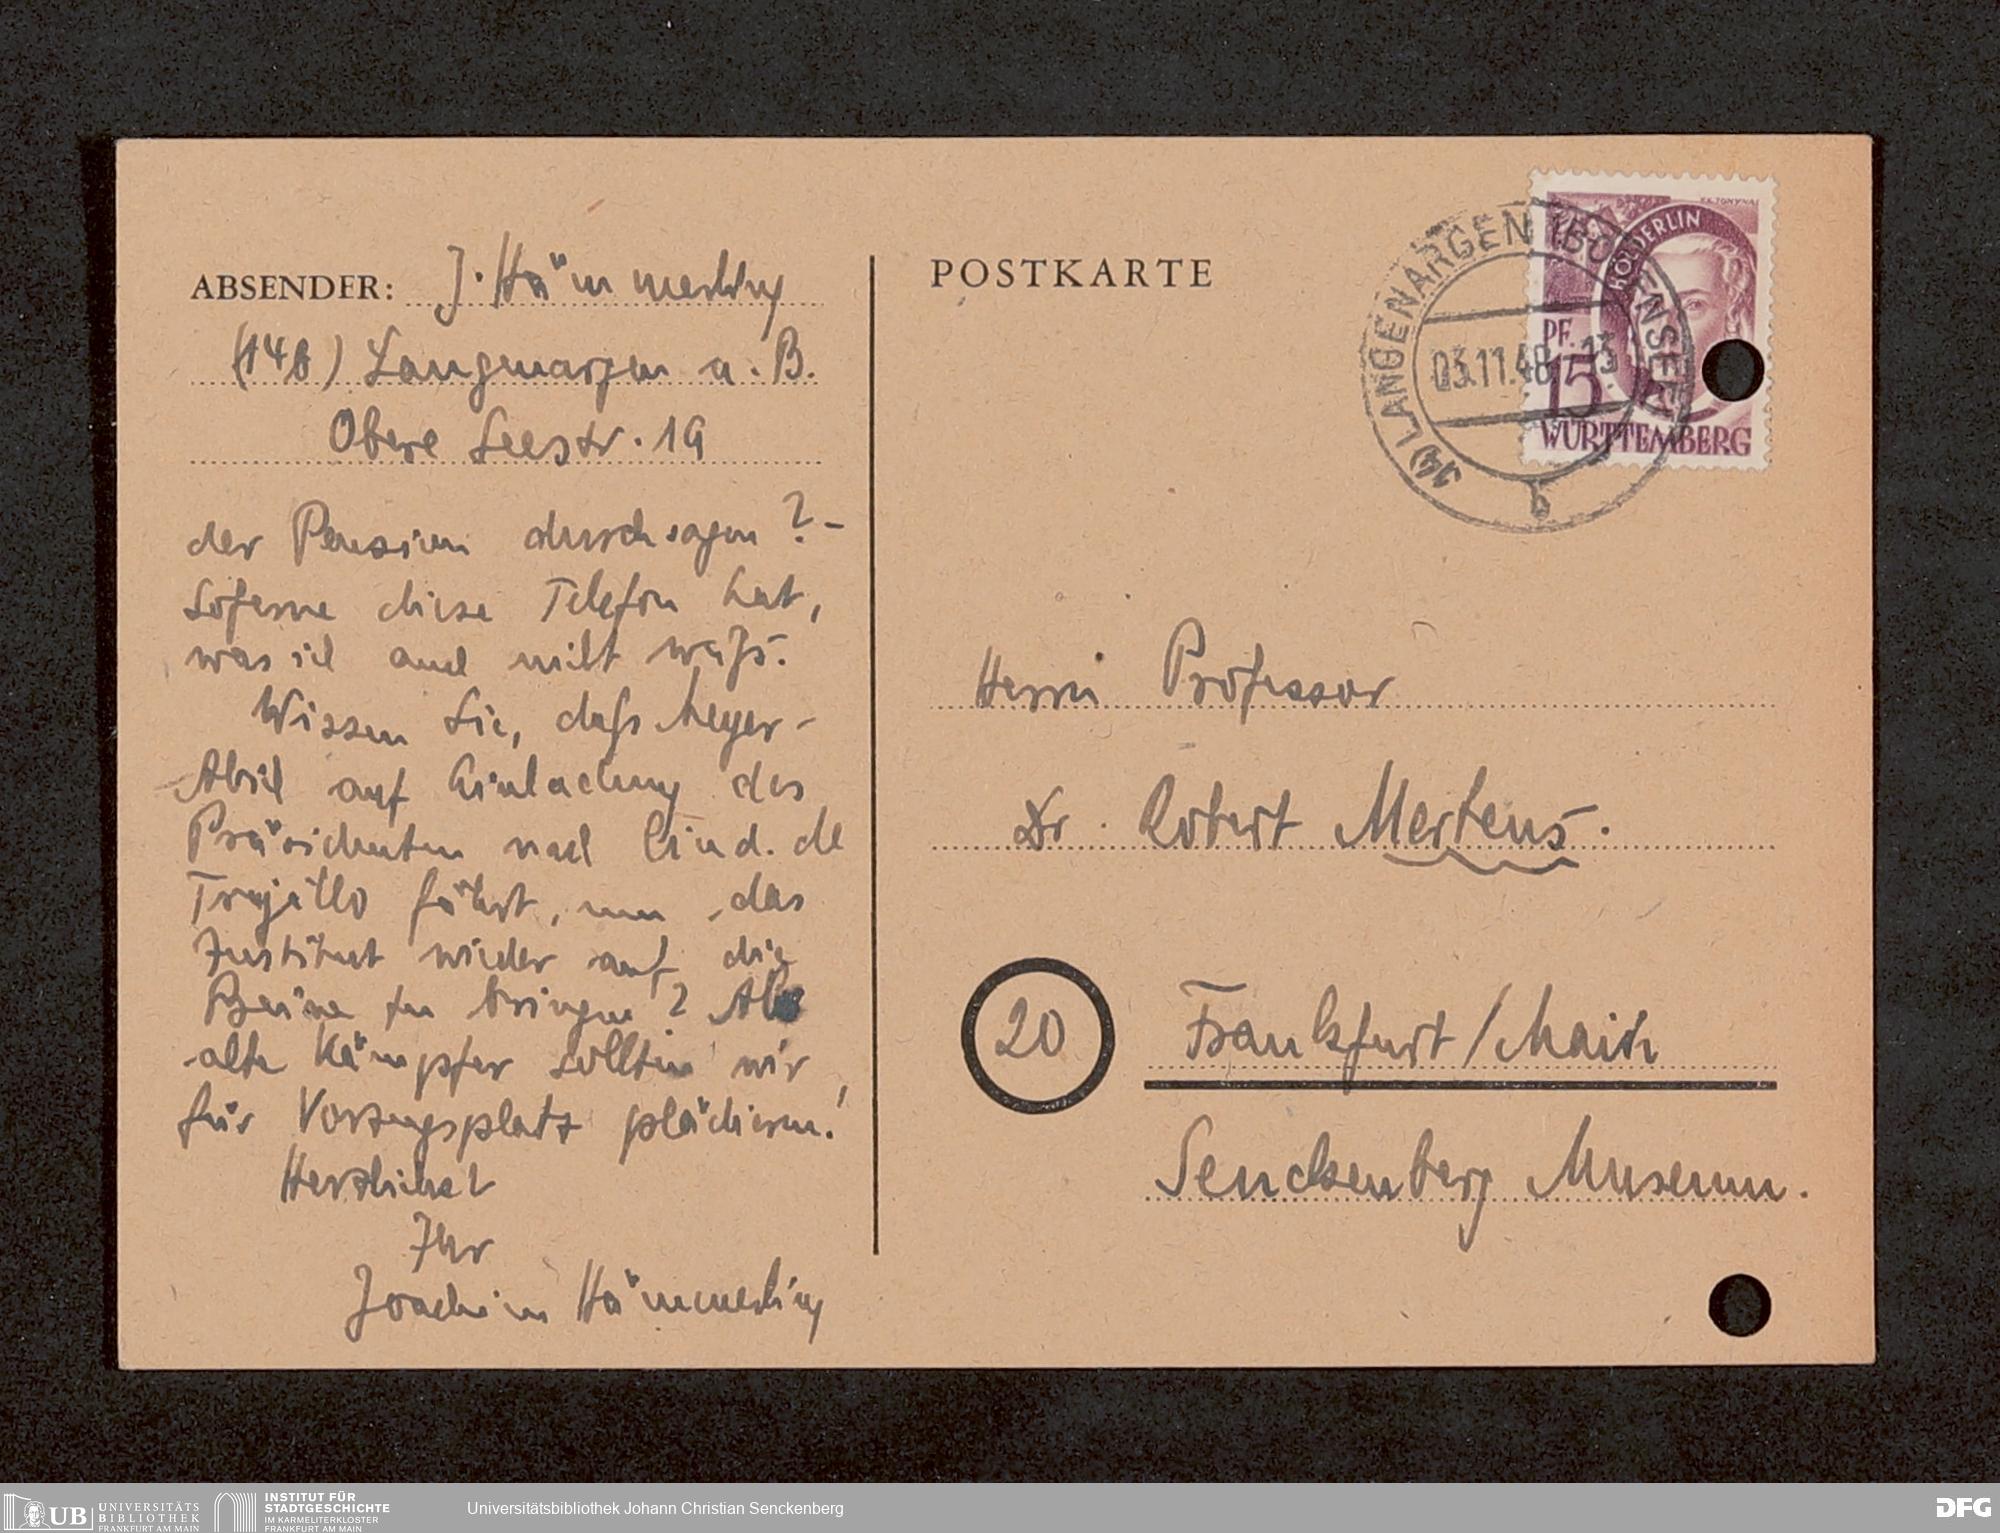 ABSENDER: J. Hämmerling
(14b) Langenargen a. B.
Obere Seestr. 19
der Pension durchsagen? –
Soferne diese Telefon hat,
was ich auch nicht weiß.
Wissen Sie, daß Meyer-
Abich auf Einladung des
Präsidenten nach Ciud. de
Trujillo fährt, um das
Institut wieder auf die
Beine zu bringen? Als
alte Kämpfer sollten wir
für Vorzugsplatz plädieren!
Herzlichst
Ihr
Joachim Hämmerling
POSTKARTE
(14) LANGENARGEN (BODENSEE)
03.11.48.-13
b
HÖLDERLIN
PF.
15
WÜRTTEMBERG
Herrn Professor
Dr. Robert Mertens.
20
Frankfurt/Main
Senckenberg Museum.
UB UNIVERSITÄTS
BIBLIOTHEK
FRANKFURT AM MAIN
INSTITUT FÜR
STADTGESCHICHTE
IM KARMELITERKLOSTER
FRANKFURT AM MAIN
Universitätsbibliothek Johann Christian Senckenberg
DFG